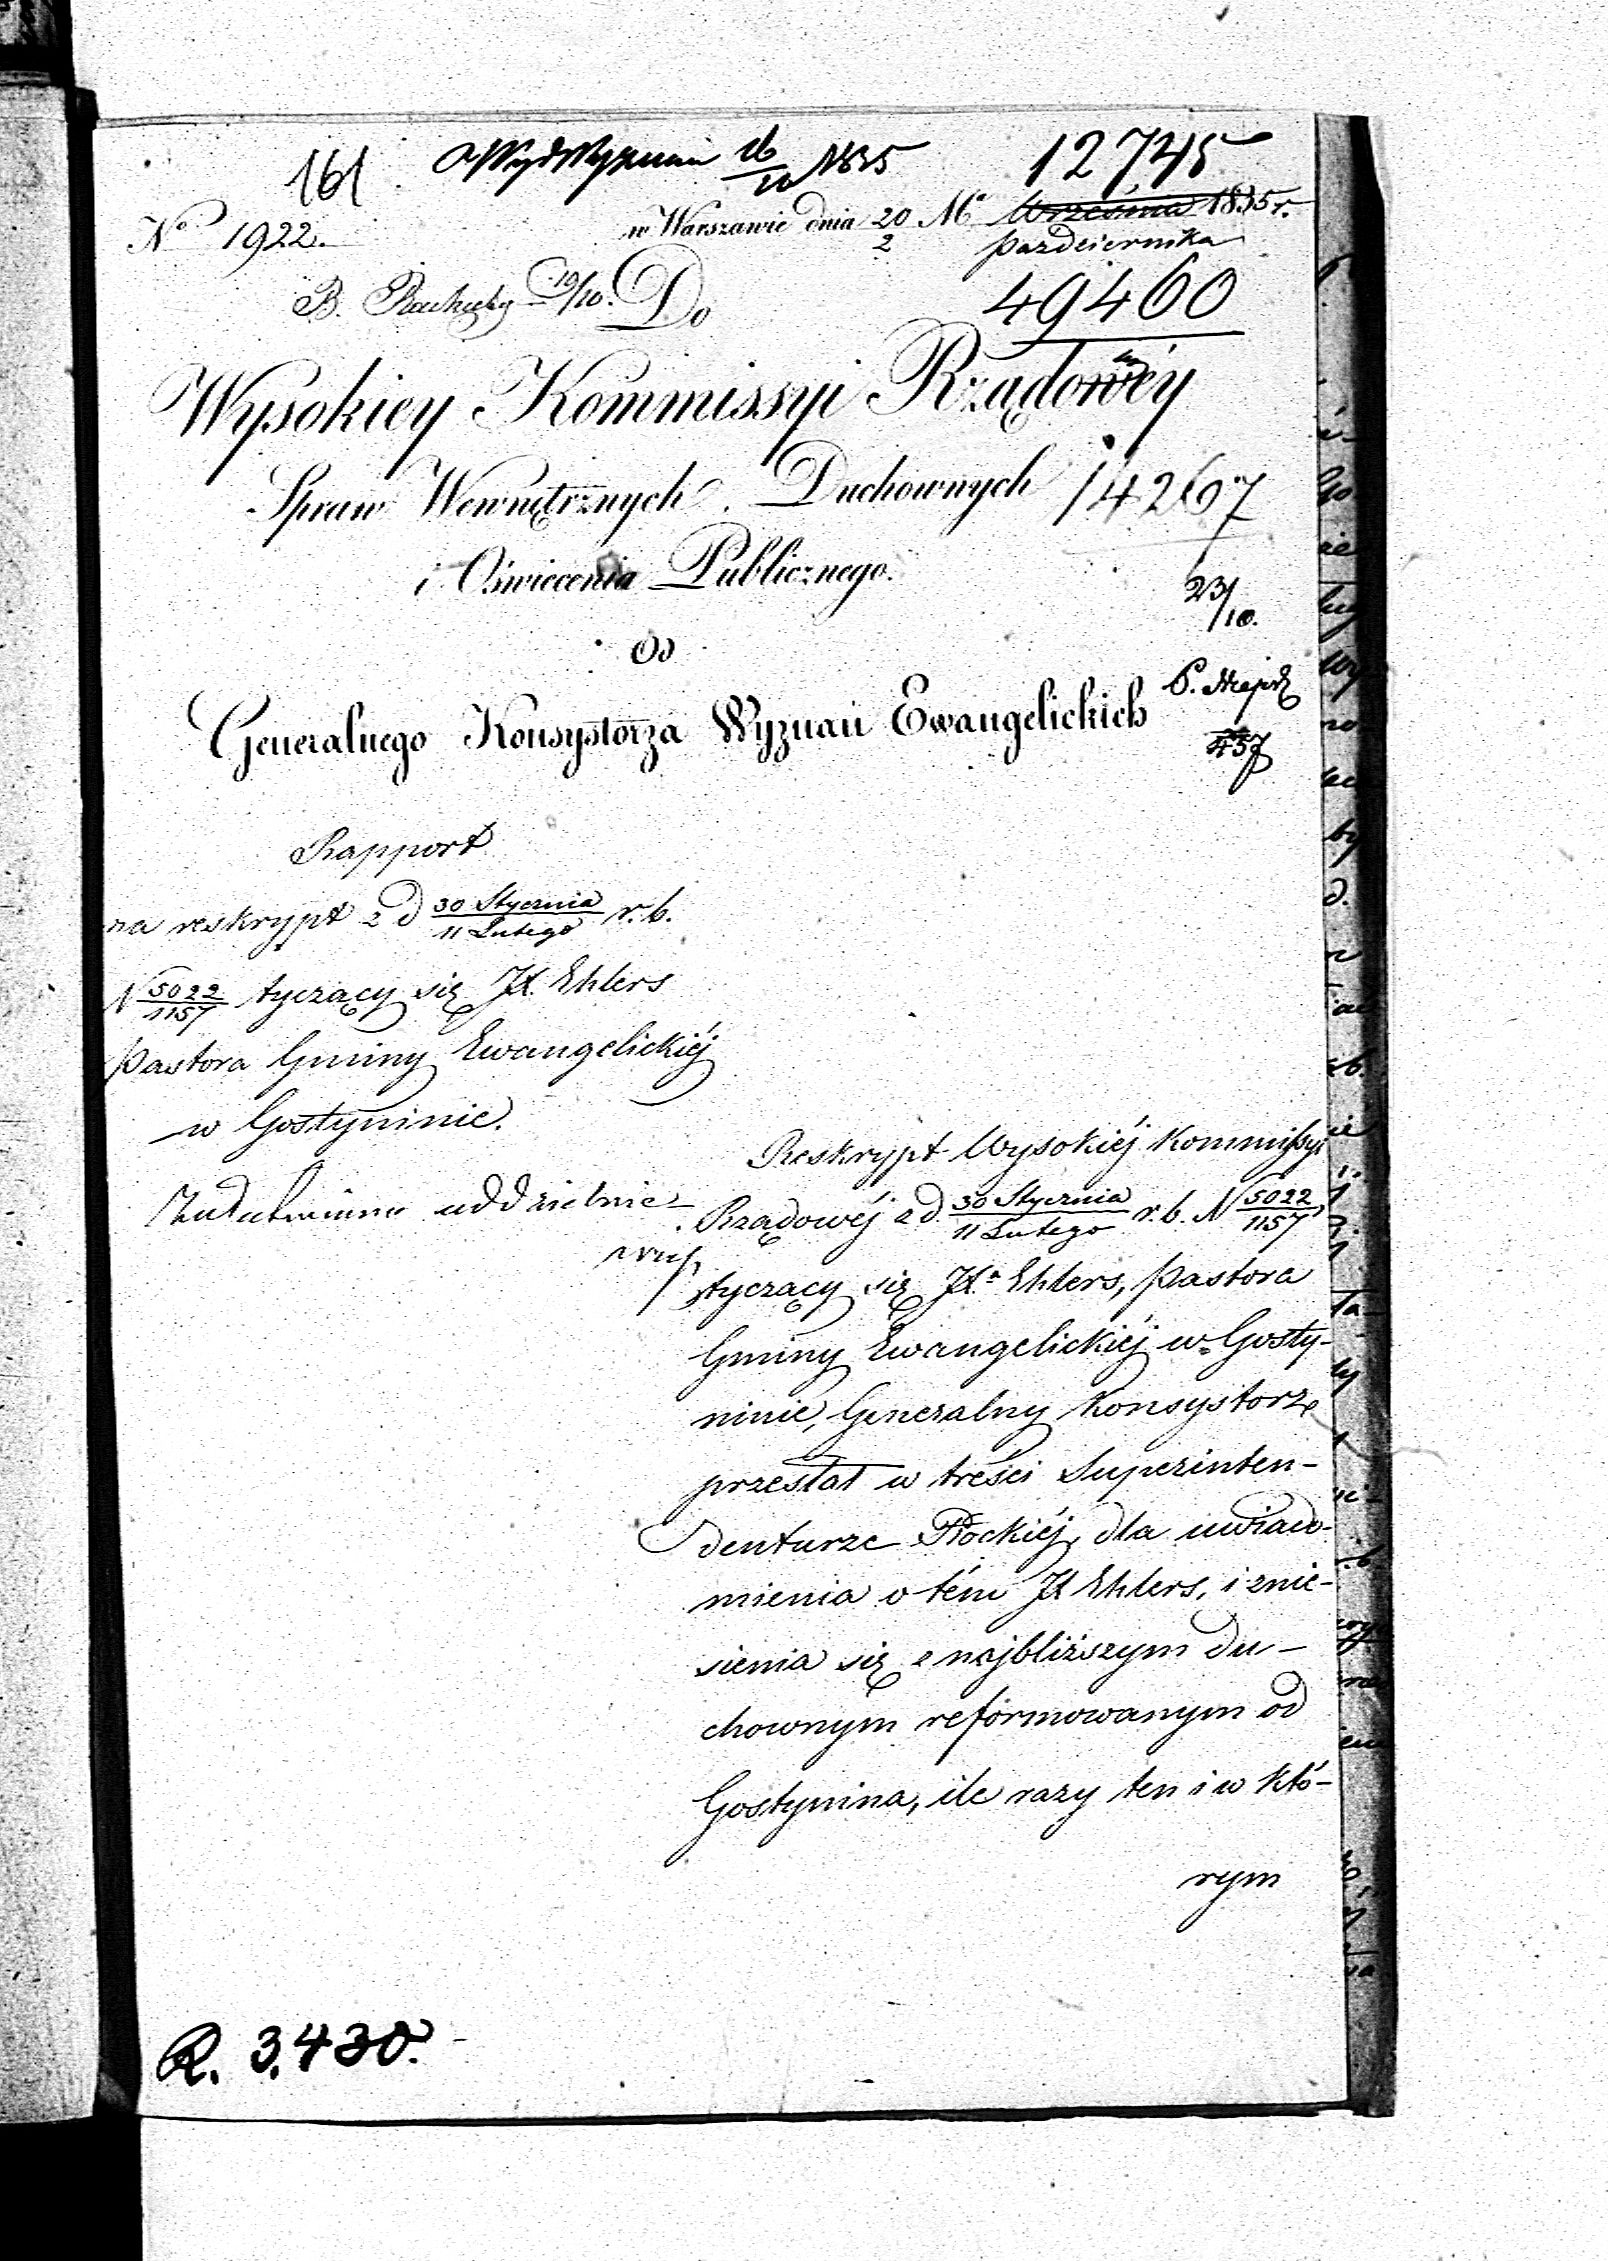 161 16/10 1835 12745
No 1922. w Warszawie dnia 20/2 Mca Września 1835 r.
Października
B. 19/10. Do 49460
Wysokiey Kommissyi Rządowéy
Spraw Wewnętrznych Duchownych 14267
i Oświecenia Publicznego.
23/10.
Od
Generalnego Konsystorza Wyznań Ewangelickich
457
Rapport
na reskrypt z d 30 Stycznia/11 Lutego r. b.
N 5022/1157 tyczący się JX. Ehlers
Pastora Gminy Ewangelickiéj
w Gostyninie.
Załatwiono oddzielnie
Reskrypt Wysokiéj Kommissyi
Rządowéj z d. 30 Stycznia/11 Lutego r. b. N 5022/1157,
tyczący się JX. Ehlers, Pastora
Gminy Ewangelickiéj w Gosty-
ninie, Generalny Konsystorz
przesłał w treści Superinten-
denturze Płockiéj, dla uwiado-
mienia o tém JX Ehlers, i znie-
sienia się z najbliższym du-
chownym reformowanym od
Gostynina, ile razy ten i w któ-
rym
R. 3.430.